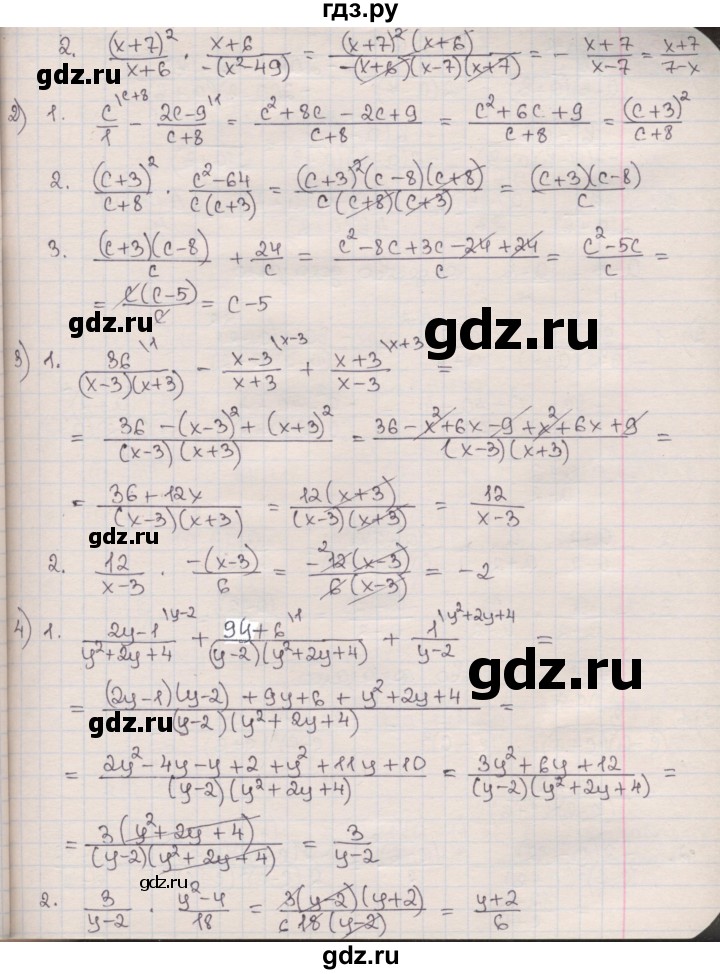 гдз.ру
2. (x+7)²/(x+6) · (x+6)/(-(x²-49)) = (x+7)²(x+6)/(-(x+6)(x-7)(x+7)) = - (x+7)/(x-7) = (x+7)/(7-x)
2) 1. c/1 \c+8 - (2c-9)/(c+8) \1 = (c²+8c-2c+9)/(c+8) = (c²+6c+9)/(c+8) = (c+3)²/(c+8)
2. (c+3)²/(c+8) · (c²-64)/(c(c+3)) = (c+3)²(c-8)(c+8)/(c(c+8)(c+3)) = (c+3)(c-8)/c
3. (c+3)(c-8)/c + 24/c = (c²-8c+3c-24+24)/c = (c²-5c)/c =
= c(c-5)/c = c-5
gdz.ru
gdz.ru
3) 1. 36/((x-3)(x+3)) \1 - (x-3)/(x+3) \x-3 + (x+3)/(x-3) \x+3 =
= (36-(x-3)²+(x+3)²)/((x-3)(x+3)) = (36-x²+6x-9+x²+6x+9)/((x-3)(x+3)) =
= (36+12x)/((x-3)(x+3)) = 12(x+3)/((x-3)(x+3)) = 12/(x-3)
gdz.ru
2. 12/(x-3) · -(x-3)/6 = -² 12(x-3)/(6(x-3)) = -2
4) 1. (2y-1)/(y²+2y+4) \y-2 + (9y+6)/((y-2)(y²+2y+4)) \1 + 1/(y-2) \y²+2y+4 =
gdz.ru
= ((2y-1)(y-2)+9y+6+y²+2y+4)/((y-2)(y²+2y+4)) =
gdz.ru
= (2y²-4y-y+2+y²+11y+10)/((y-2)(y²+2y+4)) = (3y²+6y+12)/((y-2)(y²+2y+4)) =
= 3(y²+2y+4)/((y-2)(y²+2y+4)) = 3/(y-2)
gdz.ru
2. 3/(y-2) · (y²-4)/18 = 3(y-2)(y+2)/(6 18(y-2)) = (y+2)/6
gdz.ru